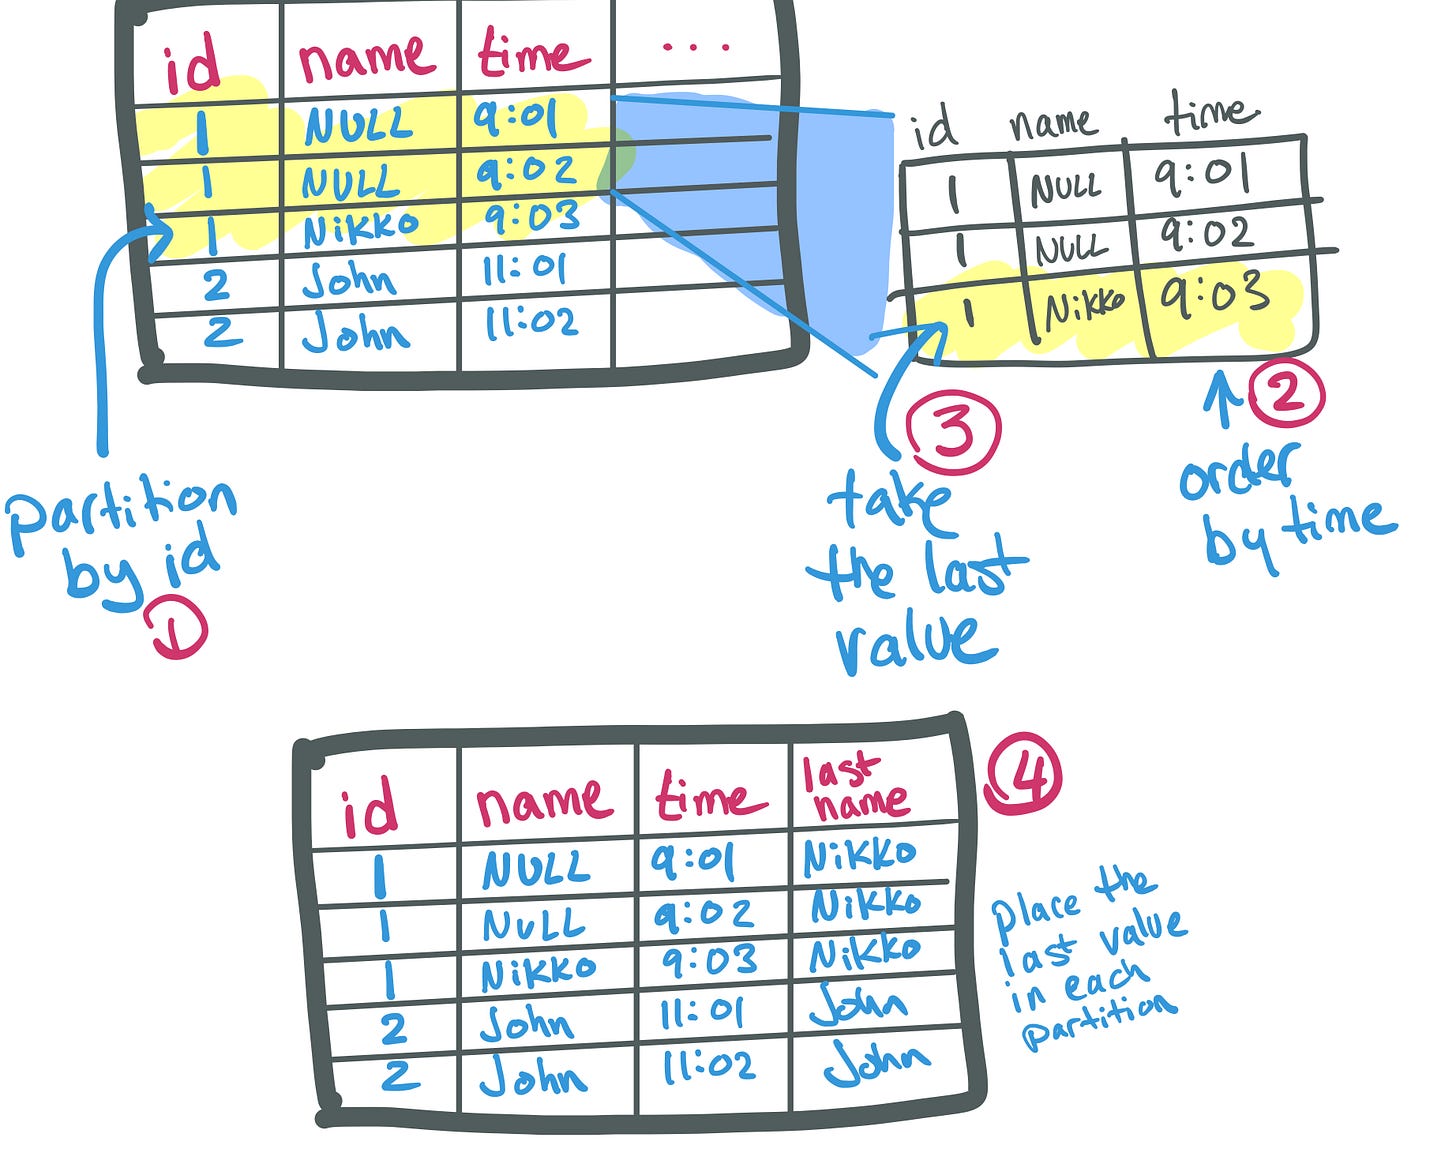 id name time ...
1 NULL 9:01
1 NULL 9:02
1 Nikko 9:03
2 John 11:01
2 John 11:02
id name time
1 NULL 9:01
1 NULL 9:02
1 Nikko 9:03
partition
by id
1
3
take
the last
value
2
order
by time
id name time last name
1 NULL 9:01 Nikko
1 NULL 9:02 Nikko
1 Nikko 9:03 Nikko
2 John 11:01 John
2 John 11:02 John
4
place the
last value
in each
partition